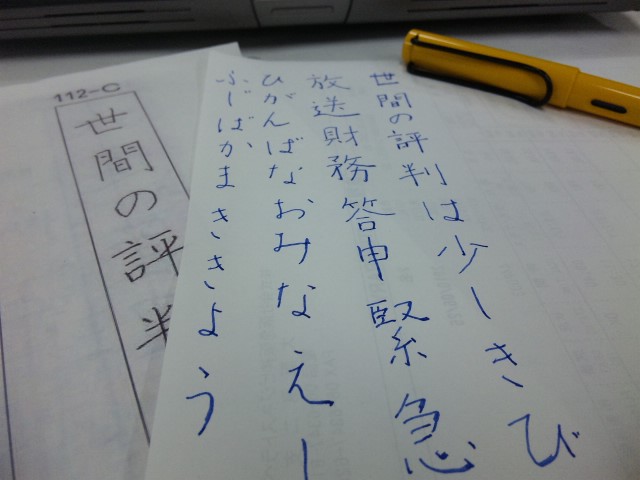 世間の評判は少しきび
放送財務答申緊急
ひがんばなおみなえし
ふじばかまききょう
112-C
世間の評判